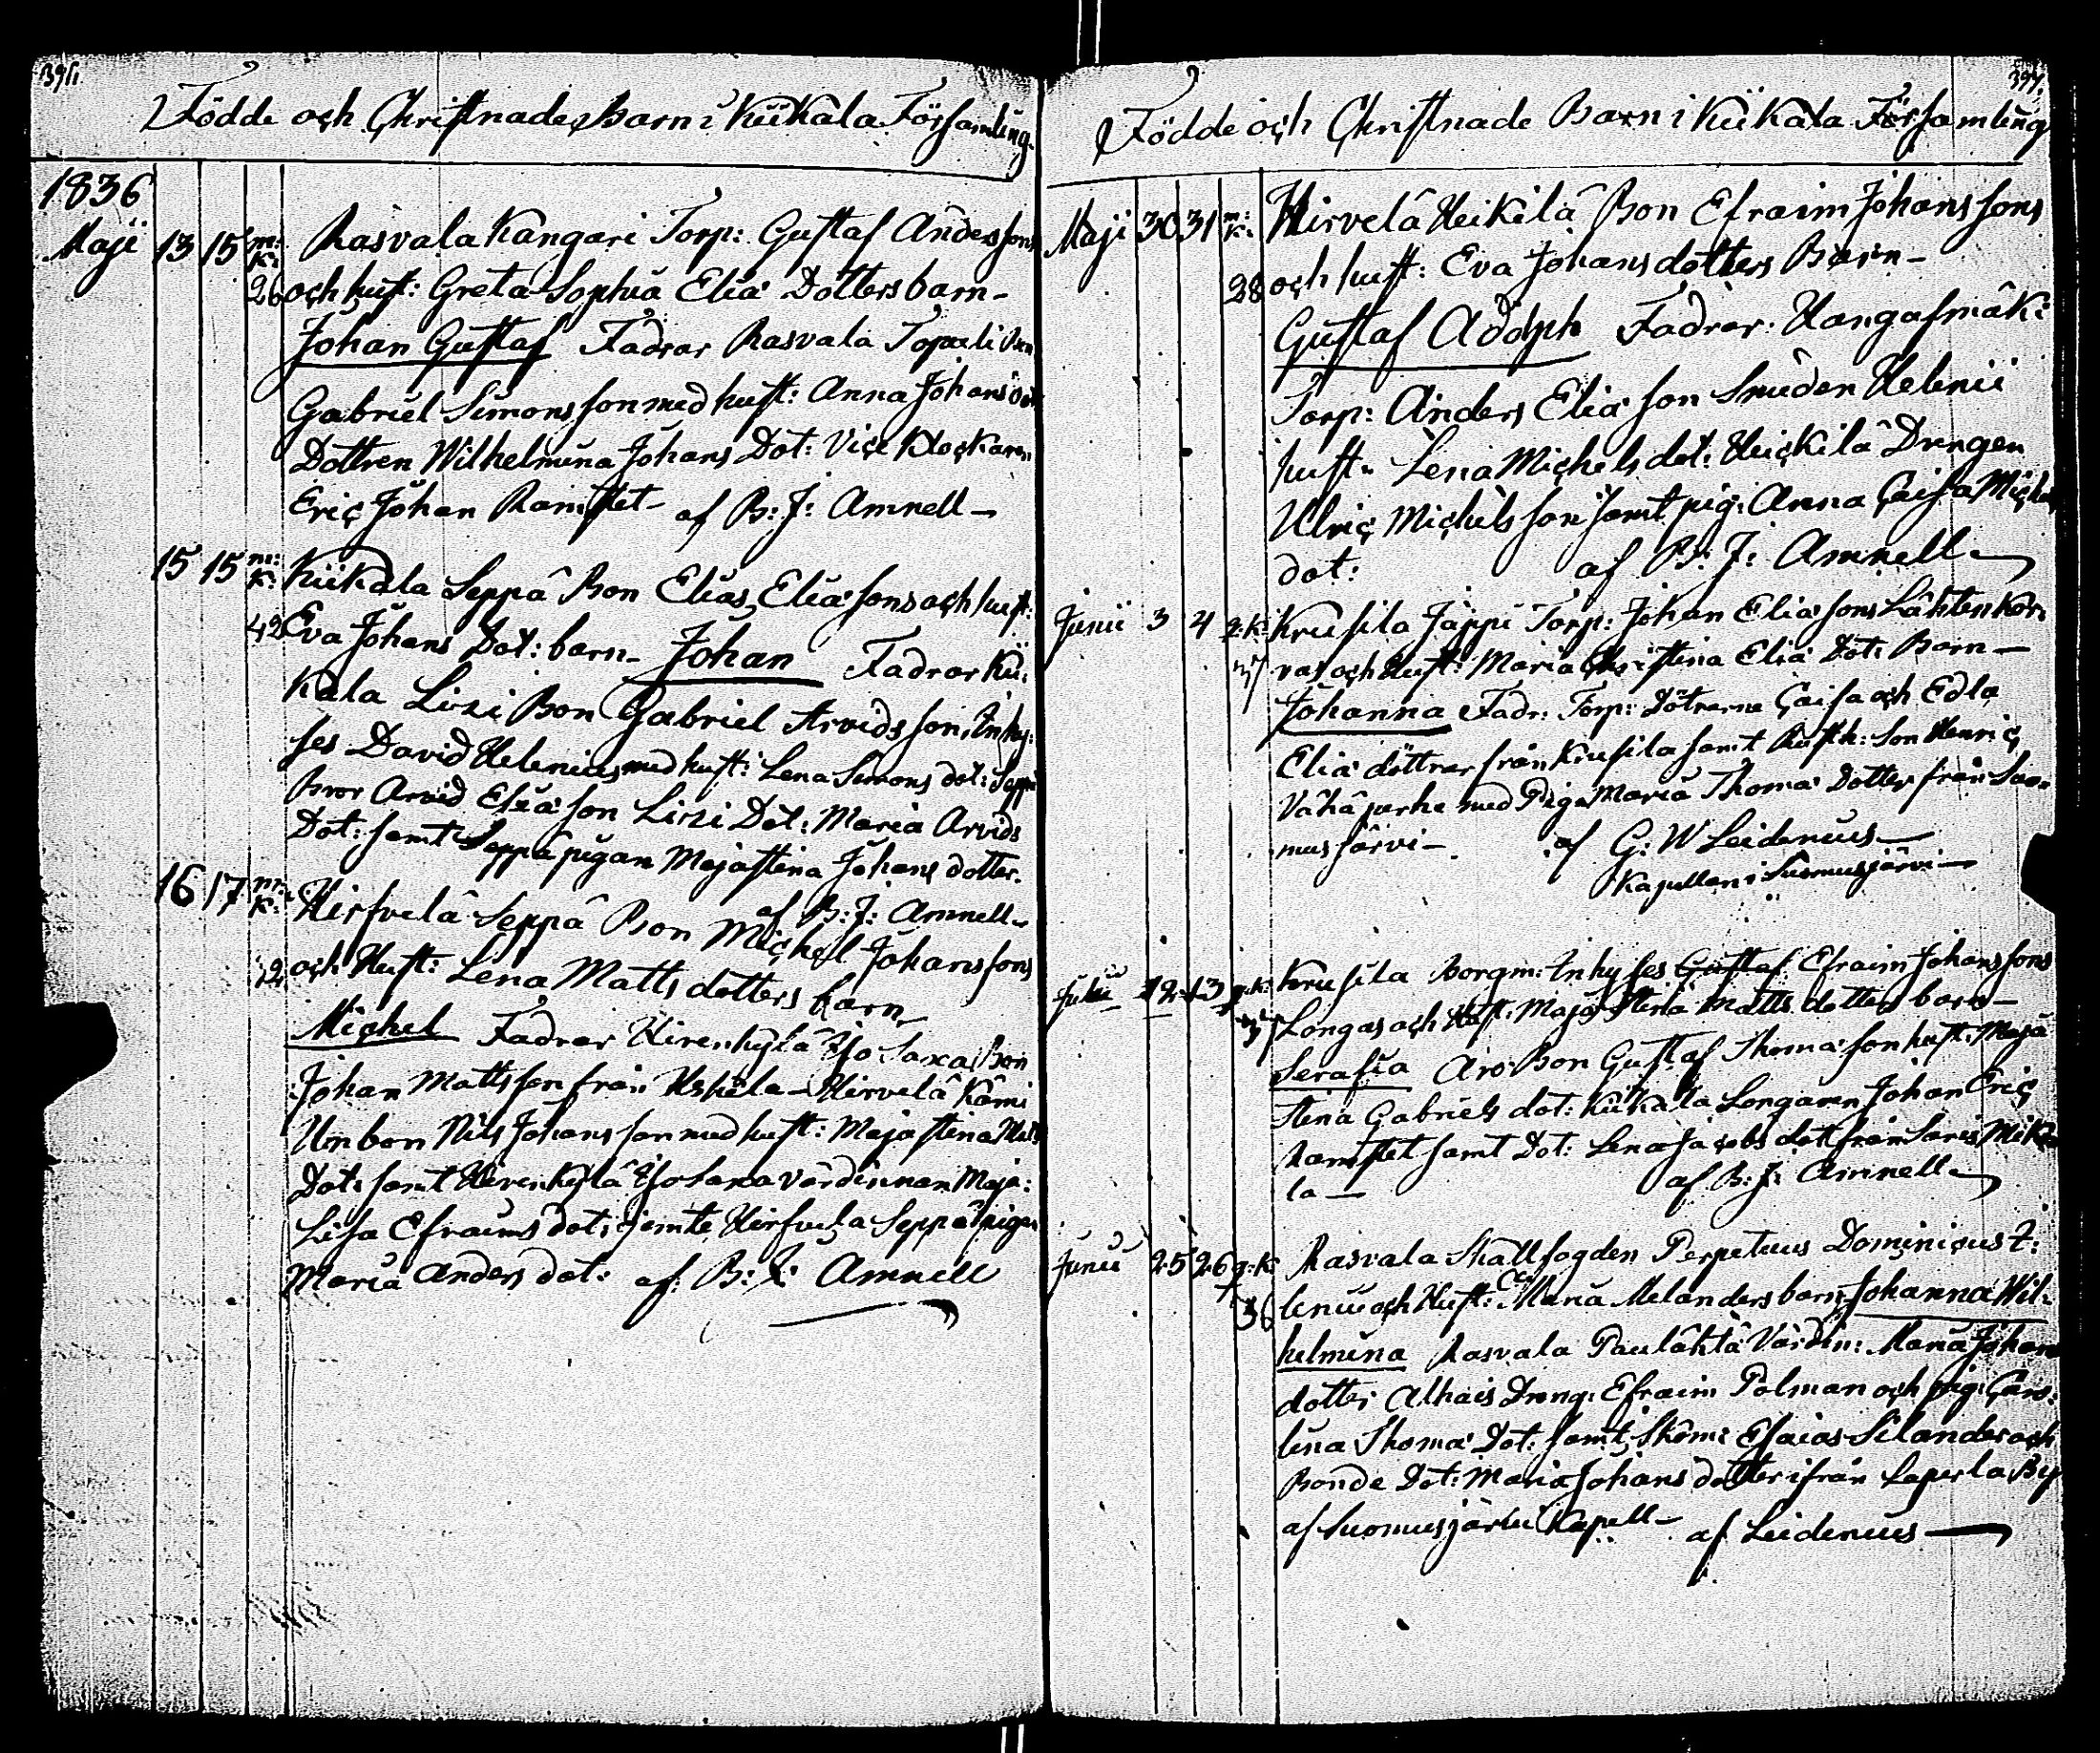 Födde och Christnade Barn i Kiikala Församling
1836
Maji 13 15 m: k: Rasvala Kangari Torp: Gustaf Anderssons
26 och hust: Greta Sophia Elia Dotters barn-
Johan Gustaf Fadrar Rasvala Topali Bon
Gabriel Simonsson med hust: Anna Johans dot
Dottren Wilhelmina Johans Dot: Vice Klockaren
Eric Johan Ramstet- af B: J: Amnell-
15 15 m: k: Kiikala Seppä Bon Elias Eliæ sons och hust:
42 Eva Johans Dot: barn- Johan Fadrar Kii-
kala Lizi Bon Gabriel Arvidsson, Inhy-
ses David Helenius med hust: Lena Simons dot: Seppä
Bror Arvid Elia son Lizi Dot: Maria Arvids
Dot: samt Seppä pigan Majastina Johans dotter.
af B: J: Amnell-
16 17 m: k: Hirfvelä Seppä Bon Michel Johanssons
och Hust: Lena Matts dotters barn
Michel Fadrar Hirenkylä Iso Saxa Bon
Johan Mattsson från Uskela- Hirvelä
Bon Nils Johansson med hust: Majastina
Dot: samt Hirenkylä Iso Saxa värdinnan Maja:
Lisa Efraims dot: jemte Hirfvela Seppä pigan
Maria Anders dot: af: B: J: Amnell
Födde och Christnade Barn i Kiikala Församling
Maji 30 31 m: k: Hirvelä Heikilä Bon Efraim Johanssons
28 och hust: Eva Johans dotters Barn-
Gustaf Adolph Fadrar: Hangasmäki
Torp: Anders Elia son Smeden Helenii
hust: Lena Michels dot: Heickilä Drengen
Ulric Michels son samt pig: Anna Caisa Michels
dot: af B: J: Amnell-
Junii 3 4 q: k: Kruusila Jäppi Torp: Johan Elia sons Lähtenkor-
37 vas och Hust: Maria Christina Elia Dot: Barn-
Johanna Fadr: Torp: Döttrarne Caisa och Edla
Elia döttrar från Kruusila samt Rusth: Son Henric
Vähäperhe med Piga Maria Thoma Dotter från Suo-
musjärvi- af G: W Leidenius-
Kapellan i Suomusjärvi-
Junii 12 13 q: k: Kruusila Borgm: Inhyses Gustaf Efraim Johanssons
Longas och Hust: Maja Stina Matts dotters barn-
Serafia Aro Bon Gustaf Thoma son hust: Maja
Stina Gabriels dot: Kiikala Longaren Johan Eric
Ramstet samt Dot: Lena Jacobs dot från Saris Mikko
la- af B: J: Amnell-
Junii 25 26 q: k: Rasvala Skallfogden Perpetuus Dominicus
36 lenii och Hust: Maria Melanders barn Johanna Wil-
helmina Rasvala Paulähtä Värdin: Maria Johans
dotter Alhais Dreng: Efraim Polman och pig: Caro-
lina Thoma Dot: samt Skom: Esaias Silander och
Bonde Dot: Maria Johans dotter ifrån Laperla By
af Suomusjärvi Kapell- af Leidenius-